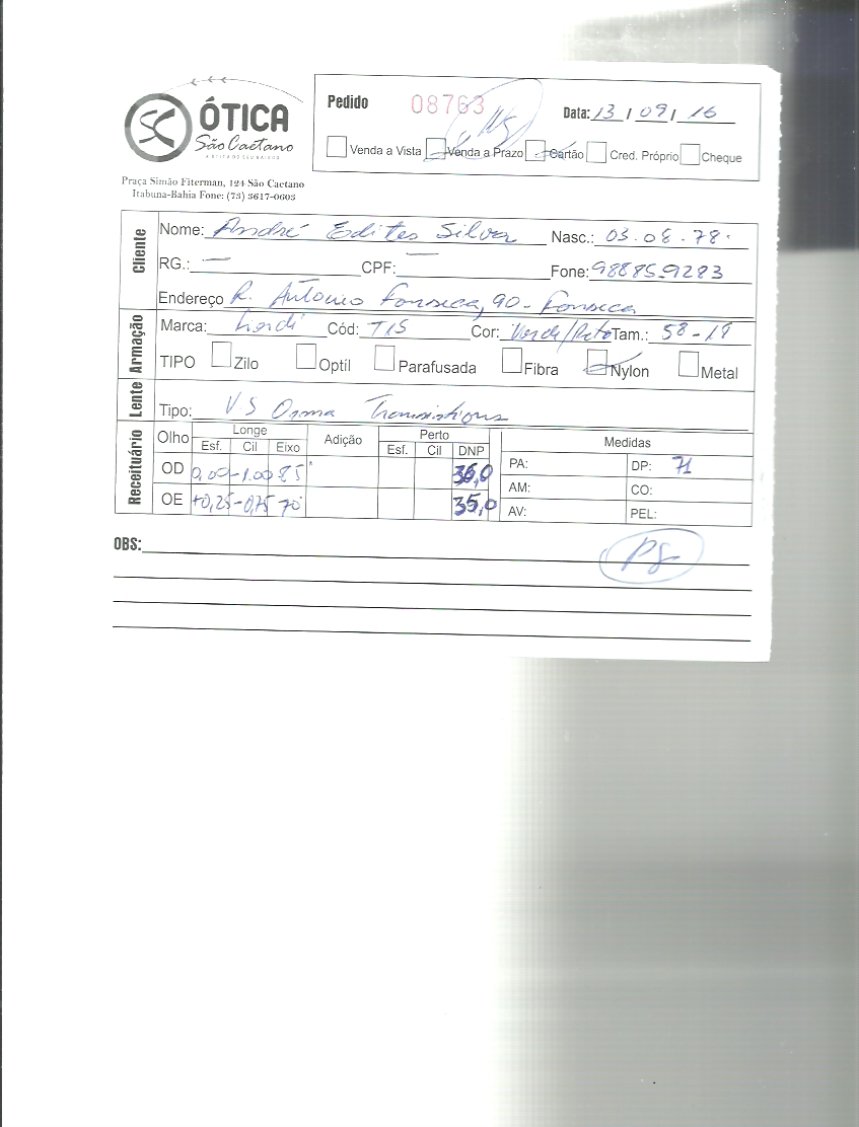 SC ÓTICA
São Caetano
Praça Simão Fiterman, 124 São Caetano
Itabuna-Bahia Fone: (73) 3617-0603
Pedido 08763 Data: 13 / 09 / 16
Venda a Vista Venda a Prazo Cartão Cred. Próprio Cheque
Cliente
Nome: André Edites Silva Nasc.: 03.08.78.
RG.: — CPF: — Fone: 98885-9283
Endereço R. Antonio Fonseca, 90 - Fonseca
Armação
Marca: Cód: T15 Cor: Verde/Preto Tam.: 58-19
TIPO Zilo Optíl Parafusada Fibra Nylon Metal
Lente
Tipo: VS Orma Transistions
Receituário
Olho Longe Adição Perto Medidas
Esf. Cil Eixo Esf. Cil DNP
OD 0,00 -1.00 85° 36,0 PA: DP: 71
AM: CO:
OE +0,25 -0,75 70° 35,0 AV: PEL:
OBS: Pg